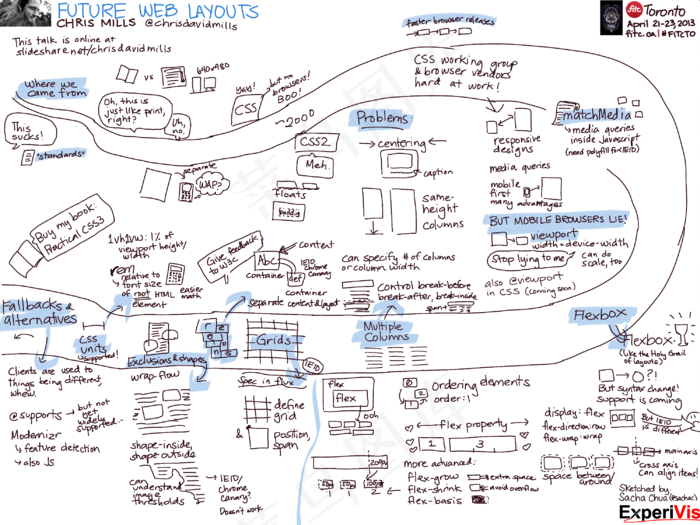 FUTURE WEB LAYOUTS
CHRIS MILLS @chrisdavidmills
This talk is online at
slideshare.net/chrisdavidmills
fitc Toronto
April 21-23, 2013
fitc.ca | #FITCTO
Where we
came from
vs
640x480
Oh, this is
just like print,
right?
Uh,
no.
Yay!
CSS
but no
browsers!
BOO!
~2000
This
sucks!
"standards"
separate
WAP?
CSS2
Meh.
floats
faster browser releases
CSS working group
& browser vendors
hard at work!
Problems
centering
caption
same-
height
columns
responsive
designs
media queries
mobile
first
many advantages
matchMedia
media queries
inside Javascript
(need polyfill for IE10)
BUT MOBILE BROWSERS LIE!
viewport
width=device-width
Stop lying to me
can do
scale, too
also @viewport
in CSS (coming soon)
Buy my book:
Practical CSS3
1vh,1vw: 1% of
viewport height/
width
rem
relative to
font size
of root HTML
element
easier
math
Give feedback
to W3C
content
Abc
def
container
container
IE10
Chrome
Canary
separate content & layout
Can specify # of columns
or column width
Control break-before
break-after, break-inside
span
Fallbacks &
alternatives
CSS
units
supported!
Exclusions & shapes
wrap-flow
Grids
IE10
Multiple
Columns
Flexbox
Clients are used to
things being different,
whew.
@supports
but not
yet
widely
supported...
Modernizr
feature detection
also JS
shape-inside,
shape outside
can
understand
image
thresholds
IE10/
chrome
canary?
Doesn't work
spec in flux
define
grid
&
position,
span
flex
flex
ooh
200px
50px
50px
100px
ordering elements
order: 1
flex property
1
3
more advanced:
flex-grow
extra space
flex-shrink
avoid overflow
flex-basis
Flexbox:
(like the Holy Grail
of layouts)
?!
But syntax change!
support is coming
display: flex
flex-direction: row
flex-wrap: wrap
But IE10
is different
main axis
cross axis
Can align items!
space between/
around
Sketched by
Sacha Chua (@sachac)
ExperiVis